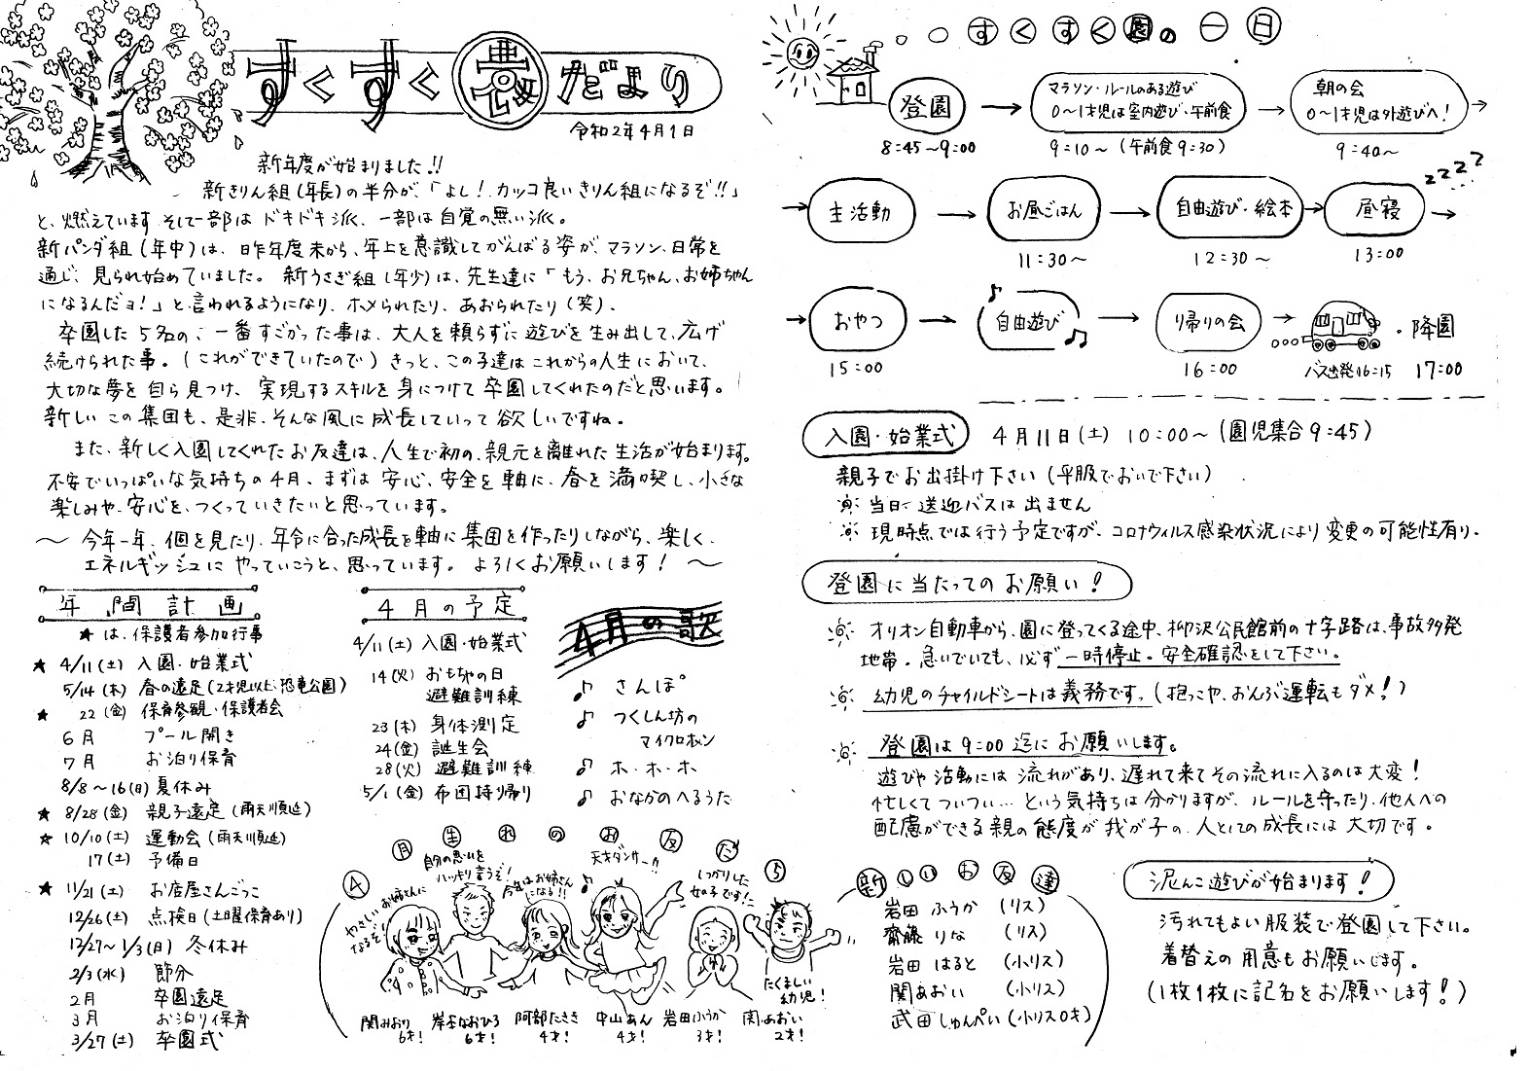 すくすく夢だより
令和2年4月1日
新年度が始まりました!!
新きりん組(年長)の半分が、「よし!カッコ良いきりん組になるぞ!!」
と、燃えています。そして一部はドキドキ派、一部は自覚の無い派。
新パンダ組(年中)は、昨年度末から、年上を意識してがんばる姿が、マラソン、日常を
通じ、見られ始めていました。新うさぎ組(年少)は、先生達に「もう、お兄ちゃん、お姉ちゃん
になるんだョ!」と言われるようになり、ホメられたり、あおられたり(笑)、
卒園した5名の、一番すごかった事は、大人を頼らずに遊びを生み出して、広げ
続けられた事。(これができていたので)きっと、この子達はこれからの人生において、
大切な夢を自ら見つけ、実現するスキルを身につけて卒園してくれたのだと思います。
新しいこの集団も、是非、そんな風に成長していって欲しいですね。
また、新しく入園してくれたお友達は、人生で初の、親元を離れた生活が始まります。
不安でいっぱいな気持ちの4月、まずは安心、安全を軸に、春を満喫し、小さな
楽しみや、安心を、つくっていきたいと思っています。
〜 今年一年、個を見たり、年令に合った成長を軸に集団を作ったりしながら、楽しく、
エネルギッシュにやっていこうと、思っています。よろしくお願いします! 〜
年間計画
★は、保護者参加行事
★ 4/11(土) 入園・始業式
5/14(木) 春の遠足(2才児以上、恐竜公園)
★ 22(金) 保育参観・保護者会
6月 プール開き
7月 お泊り保育
8/8〜16(日) 夏休み
★ 8/28(金) 親子遠足(雨天順延)
★ 10/10(土) 運動会(雨天順延)
17(土) 予備日
★ 11/21(土) お店屋さんごっこ
12/26(土) 点検日(土曜保育あり)
12/27〜1/3(日) 冬休み
2/3(水) 節分
2月 卒園遠足
3月 お泊り保育
3/27(土) 卒園式
4月の予定
4/11(土) 入園・始業式
14(火) おもちゃの日
避難訓練
23(木) 身体測定
24(金) 誕生会
28(火) 避難訓練
5/1(金) 布団持ち帰り
4月の歌
♪ さんぽ
♪ つくしん坊の
マイクロホン
♪ ホ・ホ・ホ
♪ おなかのへるうた
4月生れのお友だち
やさしいお姉さんになるぞ!
自分の思いを
ハッキリ言うぞ!
今年はお姉さんになる!!
天才ダンサー!!
しっかりした
女の子です!
たくましい
幼児!
関みおり 6才!
岸本なおひろ 6才!
阿部たまき 4才!
中山あん 4才!
岩田ふうか 3才!
関あおい 2才!
すくすく園の一日
登園
8:45〜9:00
マラソン・ルールのある遊び
0〜1才児は室内遊び・午前食
9:10〜(午前食9:30)
朝の会
0〜1才児は外遊びへ!
9:40〜
主活動
お昼ごはん
11:30〜
自由遊び・絵本
12:30〜
昼寝
13:00
zzzz
おやつ
15:00
自由遊び
帰りの会
16:00
バス出発16:15
降園
17:00
入園・始業式 4月11日(土) 10:00〜(園児集合9:45)
親子でお出掛け下さい(平服でおいで下さい)
※ 当日、送迎バスは出ません
※ 現時点では行う予定ですが、コロナウィルス感染状況により変更の可能性有り。
登園に当たってのお願い!
オリオン自動車から、園に登ってくる途中、柳沢公民館前の十字路は、事故多発
地帯。急いでいても、必ず一時停止。安全確認をして下さい。
幼児のチャイルドシートは義務です。(抱っこや、おんぶ運転もダメ!)
登園は9:00迄にお願いします。
遊びや活動には流れがあり、遅れて来てその流れに入るのは大変!
忙しくてついつい…という気持ちは分かりますが、ルールを守ったり、他人への
配慮ができる親の態度が我が子の、人としての成長には大切です。
新しいお友達
岩田 ふうか (リス)
齋藤 りな (リス)
岩田 はると (小リス)
関 あおい (小リス)
武田 しゅんぺい (小リス0才)
泥んこ遊びが始まります!
汚れてもよい服装で登園して下さい。
着替えの用意もお願いします。
(1枚1枚に記名をお願いします!)